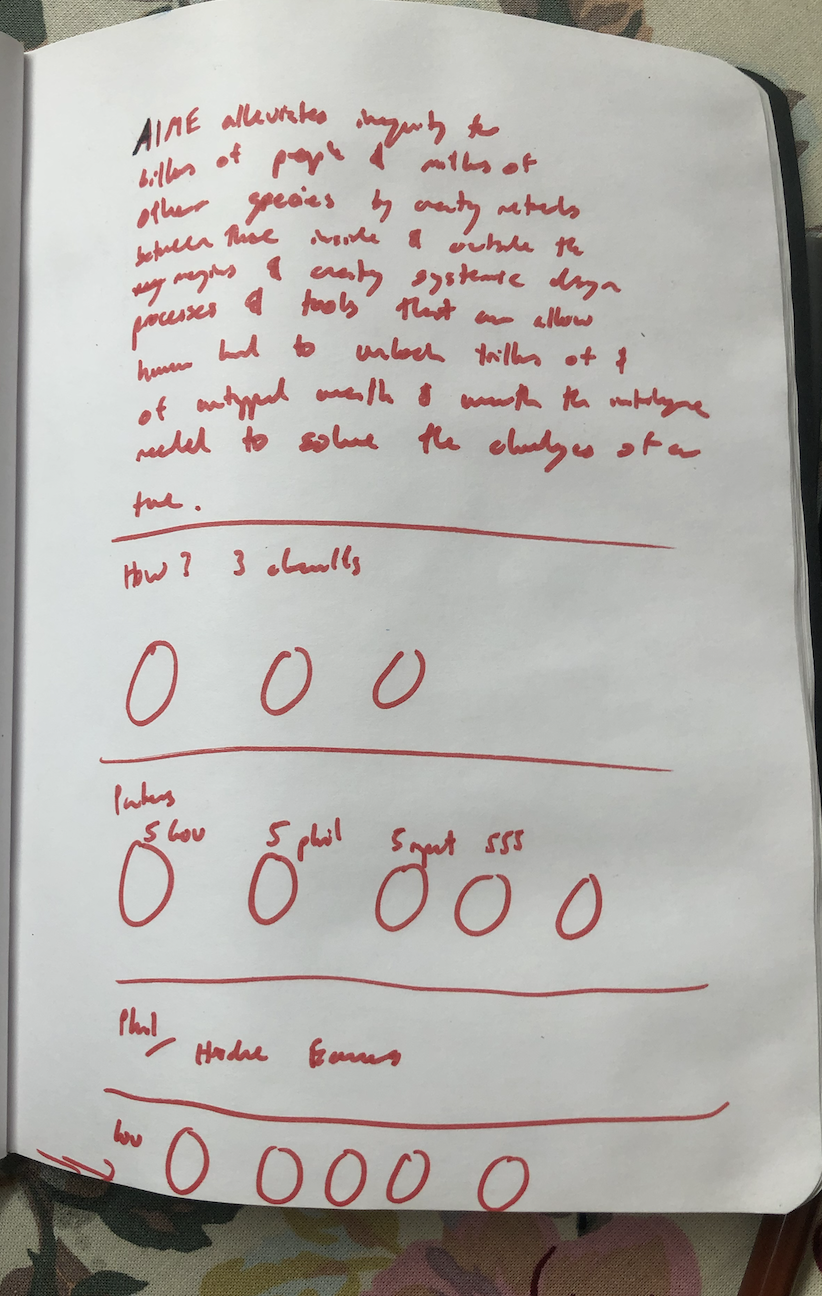 AIME alleviates inequity for
billions of people & millions of
other species by creating networks
between those inside & outside the
margins & creating systemic design
processes & tools that can allow
human kind to unlock trillions of $
of untapped wealth & the intelligence
needed to solve the challenges of our
time.
How? 3
Partners
5 Gov 5 phil 5 555
Phil
Gov